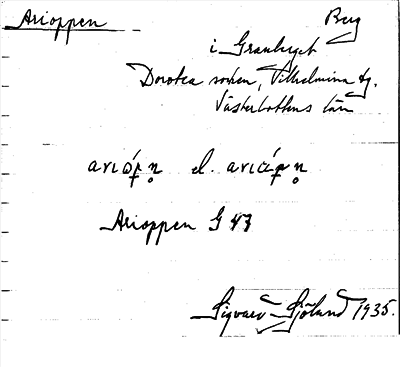 Arioppen Berg
i Granberget
Dorotea socken, Vilhelmina tg.
Västerbottens län
el.
Arioppen G 43
Sigvard Sjöland 1935.